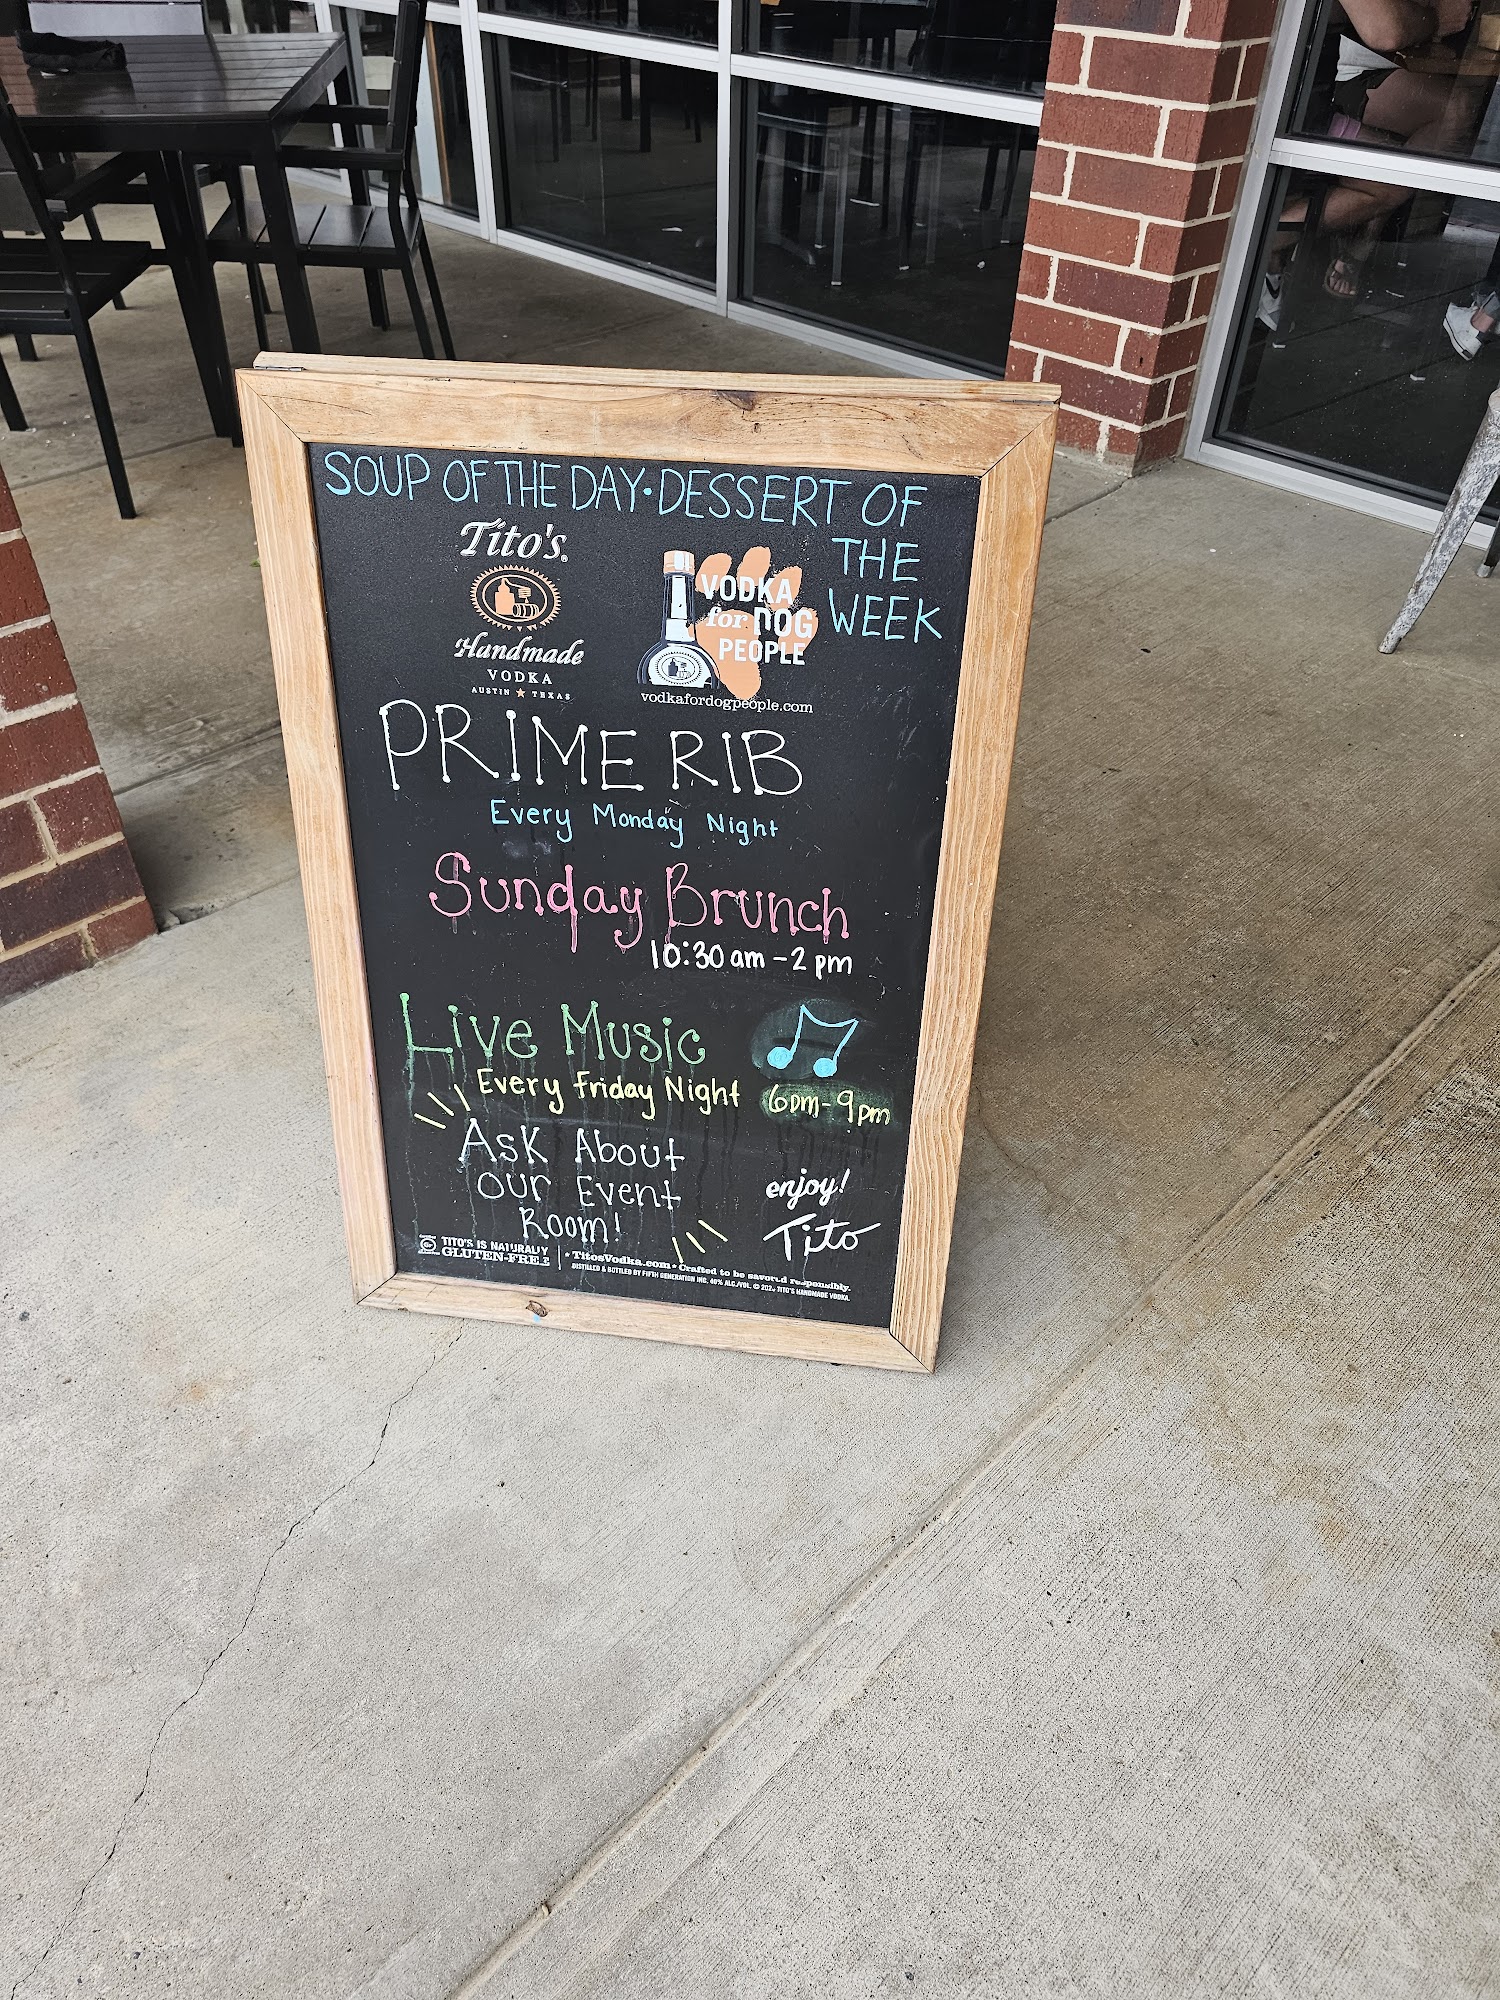 SOUP OF THE DAY • DESSERT OF
THE
WEEK
Tito's
Handmade
VODKA
AUSTIN ★ TEXAS
VODKA
for DOG
PEOPLE
vodkafordogpeople.com
PRIME RIB
Every Monday Night
Sunday Brunch
10:30 am - 2 pm
Live Music
Every Friday Night 6pm - 9pm
Ask About
our Event
Room!
enjoy!
Tito
TITO'S IS NATURALLY
GLUTEN-FREE
• TitosVodka.com • Crafted to be savored responsibly.
DISTILLED & BOTTLED BY FIFTH GENERATION INC. 40% ALC./VOL. © TITO'S HANDMADE VODKA.